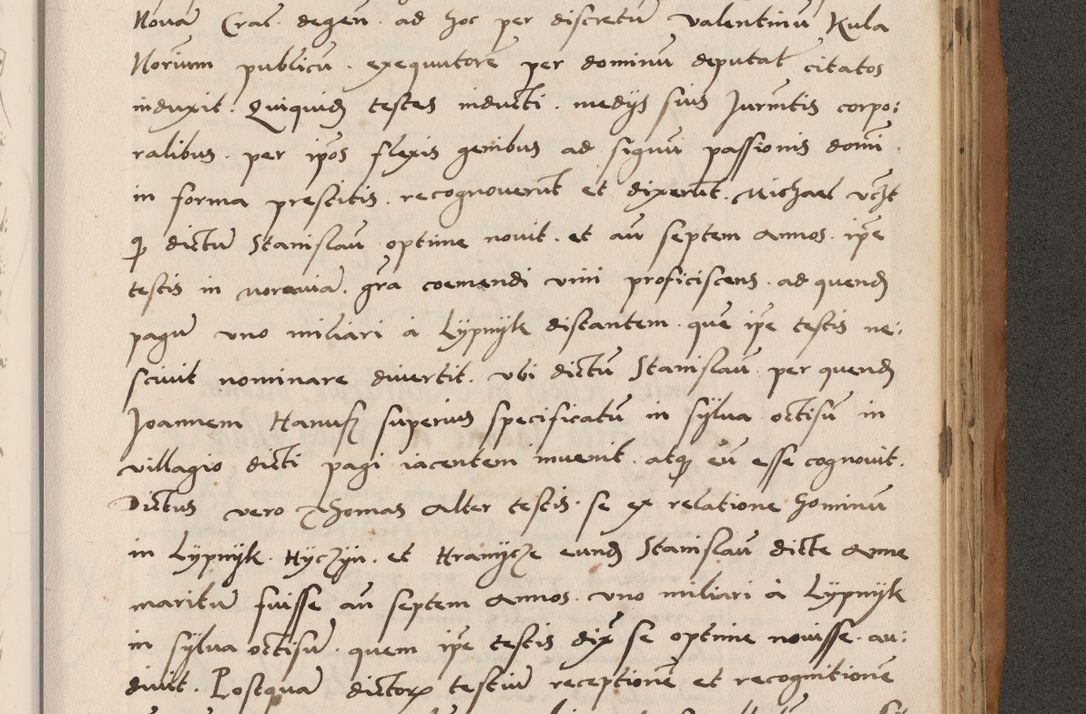 Novã Crac. degeñ. ad hoc per discretũ Valentinũ Kula
Noriũm publicũ. exequutorẽ per dominũ deputat̃ citatos
induxit. Quiquid testes inducti. medijs suis Jurm̃tis corpo:
ralibus. per ip̃os flexis genibus ad signũ passionis domi
in forma prestitis. recognoverũt et dixerũt. Michael vcz̃t
qꝫ dictũ Stanislaũ. optime novit. et añ septem Annos. ip̃e
testis in moraviã. gr̃a coemendi vini proficiscens. ad quend̃
pagũ uno miliari à Lijpnijk distantem. quẽ ip̃e testis ne:
scivit nominare divertit. ubi dictũ Stanislaũ. per quend̃
Joannem Hanusz superius specificatũ in sijlva occisũ in
villagio dicti pagi iacentem invenit. atqꝫ eũ esse cognovit.
Dictus vero Thomas Alter testis. se ex relatione hominũ
in Lijpnijk. Hijczijn. et Hranijcze eund̃ Stanislaũ dicte Anne
maritũ fuisse añ septem Annos. uno miliari à Lijpnijk
in sijlva occisũ. quem ip̃e testis dix̃ se optime novisse. au:
divit. Postquã dictorꝫ testiũ receptionẽ et recognitionẽ